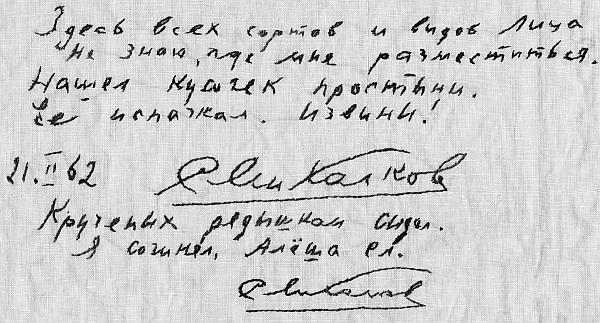 Здесь всех сортов и видов лица
Не знаю, где мне разместиться.
Нашел кусочек простыни.
Её испачкал. Извини!
21.II 62 С Михалков
Крученых редьки ком сидел.
Я сочинял, Алёша ел.
С Михалков